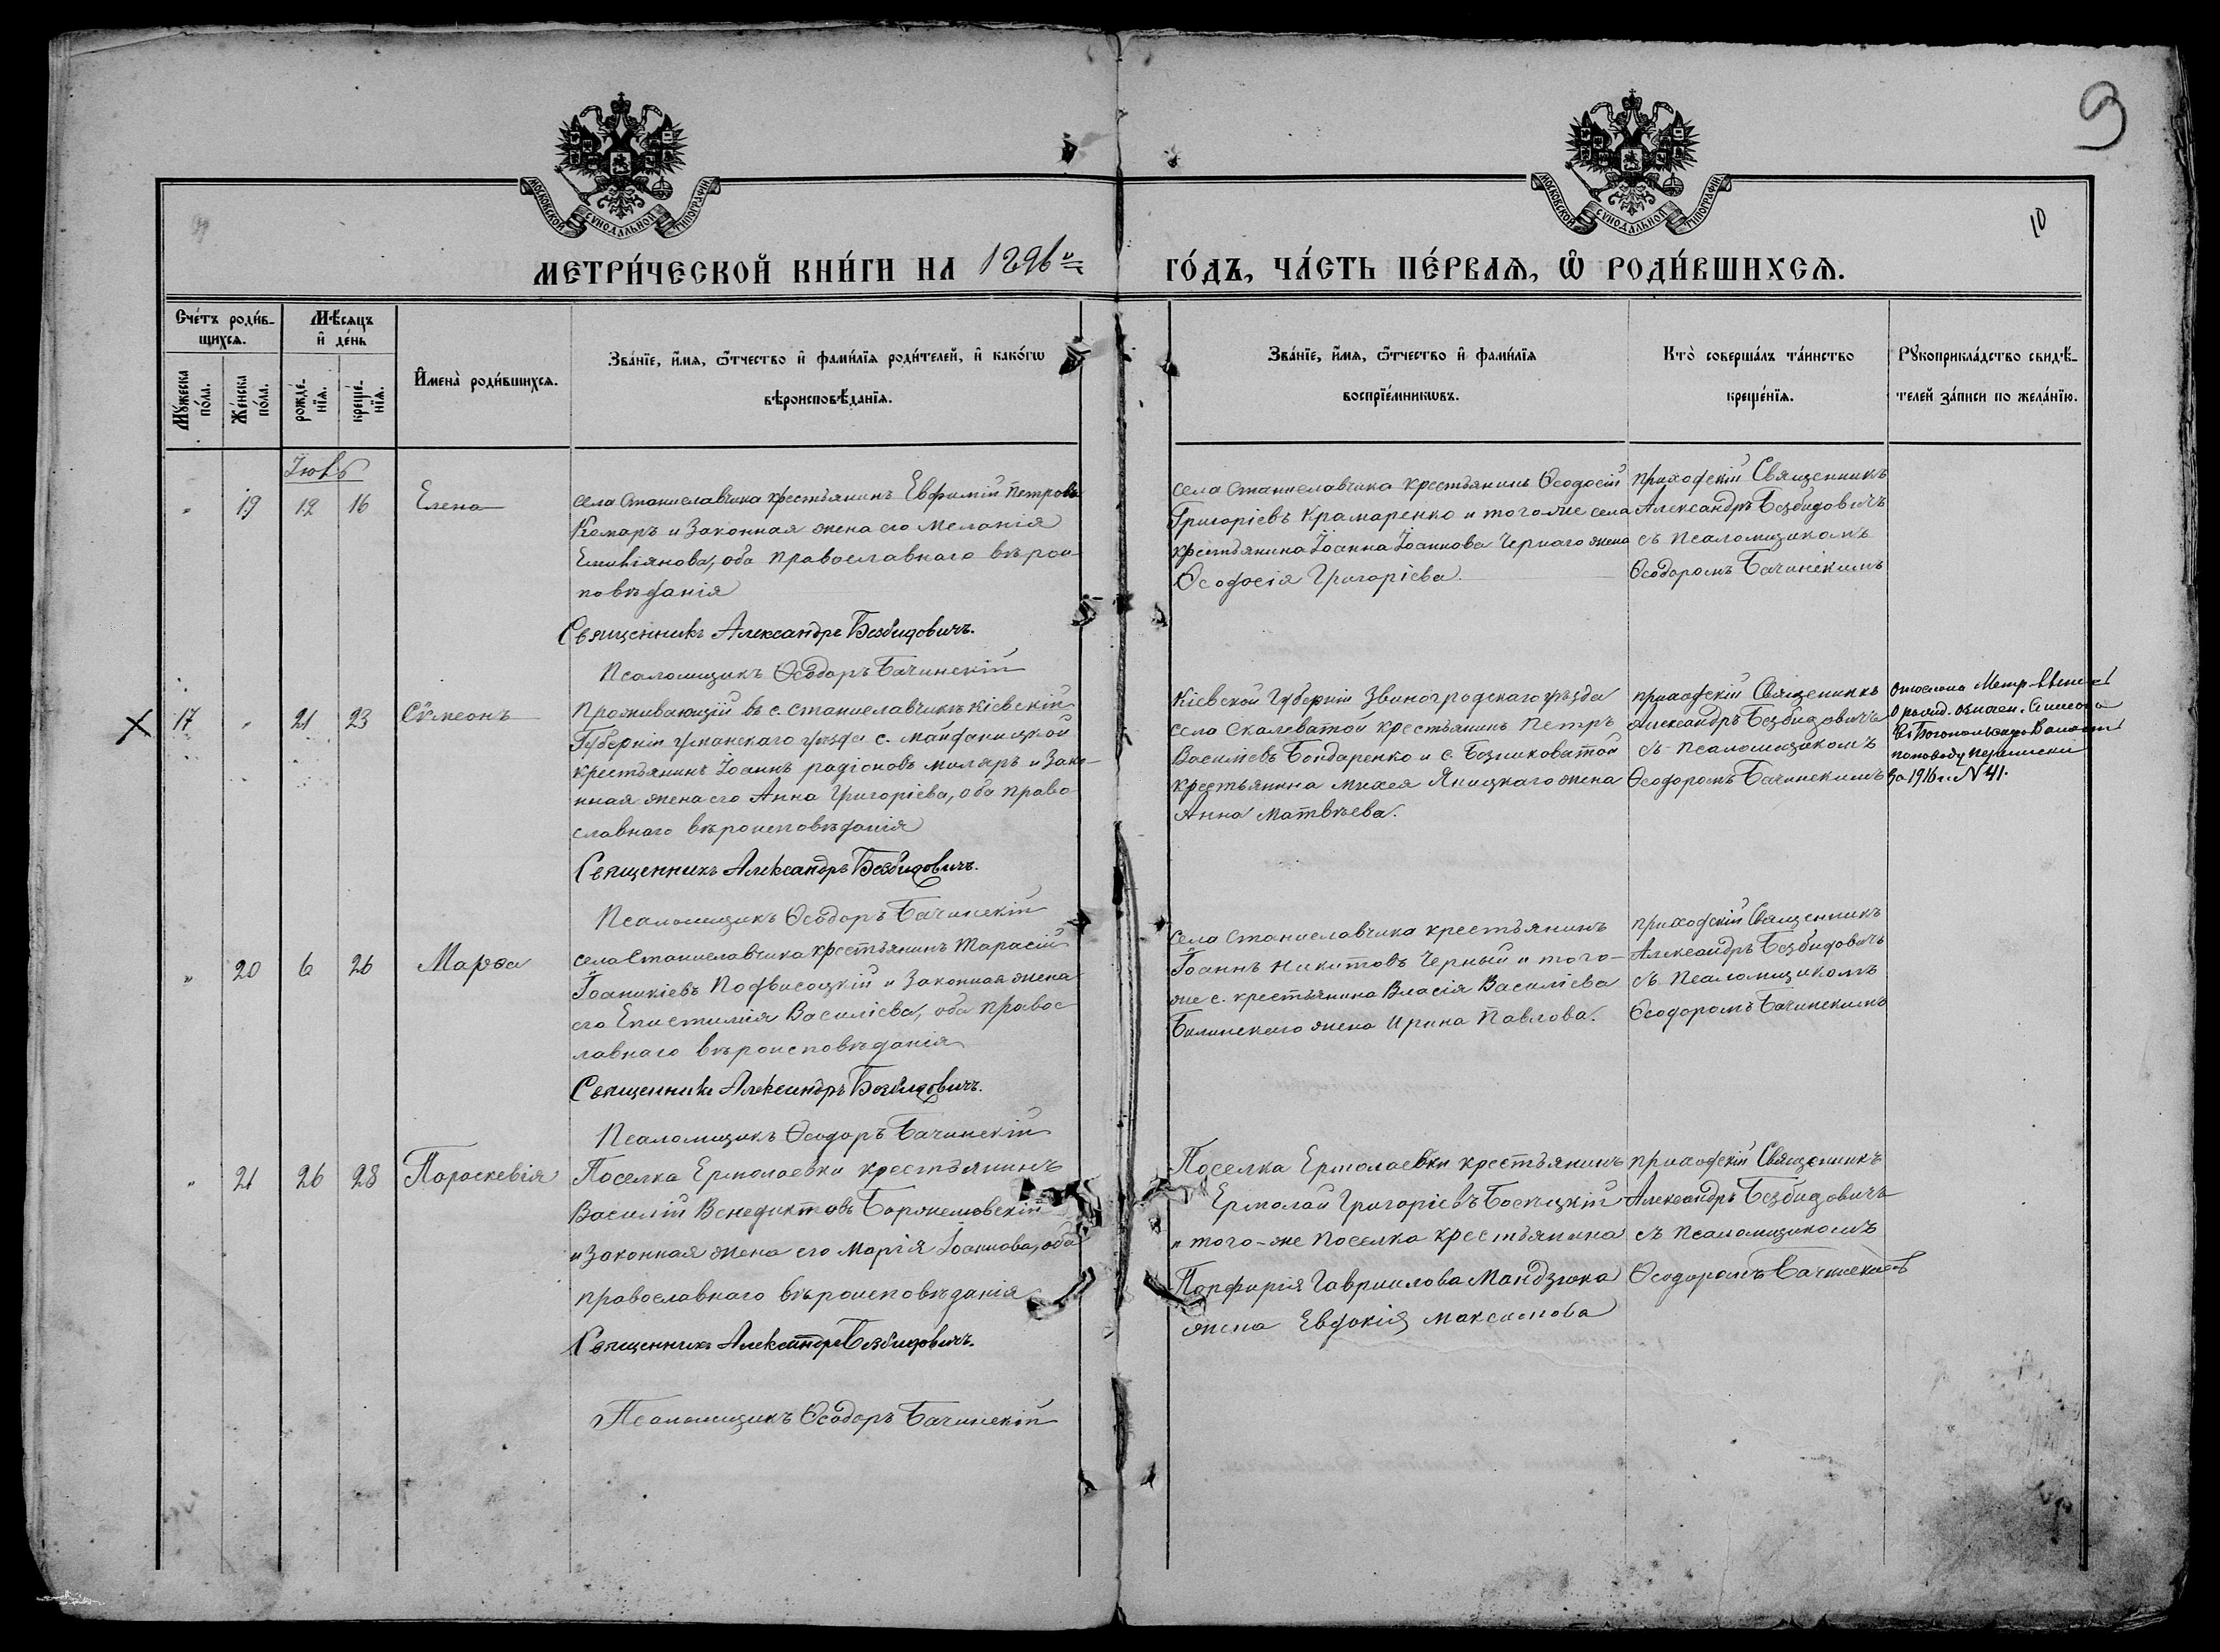 9
10
МОСКОВСКОЙ СѴНОДАЛЬНОЙ ТИПОГРАФІИ
МОСКОВСКОЙ СѴНОДАЛЬНОЙ ТИПОГРАФІИ
МЕТРИ́ЧЕСКОЙ КНИ́ГИ НА 1896й ГО́ДЪ, ЧА́СТЬ ПЕ́РВАѦ, Ѡ҆ РОДИ́ВШИХСѦ.
Сче́тъ роди́в-
щихсѧ.
Мѣ́сѧцъ
и҆ де́нь
Мꙋ́жеска
по́ла.
Же́нска
по́ла.
рожде́-
нїѧ.
креще́-
нїѧ.
И҆мена̀ роди́вшихсѧ.
Зва́нїе, и҆́мѧ, ѻ҆́тчество и҆ фами́лїѧ роди́телей, и҆ како́гѡ
вѣроисповѣ́данїѧ.
Зва́нїе, и҆́мѧ, ѻ҆́тчество и҆ фами́лїѧ
воспрїе́мникѡвъ.
Кто̀ соверша́лъ та́инство
креще́нїѧ.
Рꙋкоприкла́дство свидѣ́-
телей за́писи по жела́нїю.
" 19 12 16 Елена
села Станиславчика крестьянинъ Евфимій Петровъ
Комаръ и законная жена его Меланія
Емиліянова, оба православнаго вѣрои-
повѣданія
Священникъ Александръ Безвидовичъ.
Псаломщикъ Ѳеодоръ Бачинскій
села Станиславчика крестьянинъ Ѳеодосій
Григоріевъ Крамаренко и того-же села
крестьянина Іоанна Іоаннова Чернаго жена
Ѳеодосія Григоріева.
приходскій Священникъ
Александръ Безвидовичъ
съ псаломщикомъ
Ѳеодоромъ Бачинскимъ
17 " 21 23 Сѵмеонъ
Проживающій въ с. Станиславчикѣ Кіевскій
Губерніи Уманскаго уѣзда с. Майданицкой
крестьянинъ Іоаннъ Радіоновъ Миляръ и зако-
нная жена его Анна Григоріева, оба право-
славнаго вѣроисповѣданія
Священникъ Александръ Безвидовичъ.
Псаломщикъ Ѳеодоръ Бачинскій
Кіевской Губерніи Звиногродскаго уѣзда
села Скалеватой крестьянинъ Петръ
Василіевъ Бондаренко и с.
крестьянина Михея Яницкаго жена
Анна Матвѣева.
приходскій Священникъ
Александръ Безвидовичъ
съ псаломщикомъ
Ѳеодоромъ Бачинскимъ
Метр.
Въ Богопольскую
поповоду переписки
за 1916 г. № 41.
" 20 6 26 Марѳа
села Станиславчика крестьянинъ Тарасій
Іоаникіевъ Подвисоцкій и законная жена
его Епистимія Василіева, оба правос-
лавнаго вѣроисповѣданія
Священникъ Александръ Безвидовичъ.
Псаломщикъ Ѳеодоръ Бачинскій
села Станиславчика крестьянинъ
Іоаннъ Никитовъ Черный и того-
же с. крестьянина Власія Василіева
Билинскаго жена Ирина Павлова.
приходскій Священникъ
Александръ Безвидовичъ
съ псаломщикомъ
Ѳеодоромъ Бачинскимъ
" 21 26 28 Параскевія
Поселка Ермолаевки крестьянинъ
Василій Венедиктовъ
и законная жена его Марія Іоаннова, оба
православнаго вѣроисповѣданія
Священникъ Александръ Безвидовичъ.
Псаломщикъ Ѳеодоръ Бачинскій
Поселка Ермолаевки крестьянинъ
Ермолай Григоріевъ
и того-же поселка крестьянина
Порфирія Гавриилова Мандзюка
жена Евдокія Максимова
приходскій Священникъ
Александръ Безвидовичъ
съ псаломщикомъ
Ѳеодоромъ Бачинскимъ